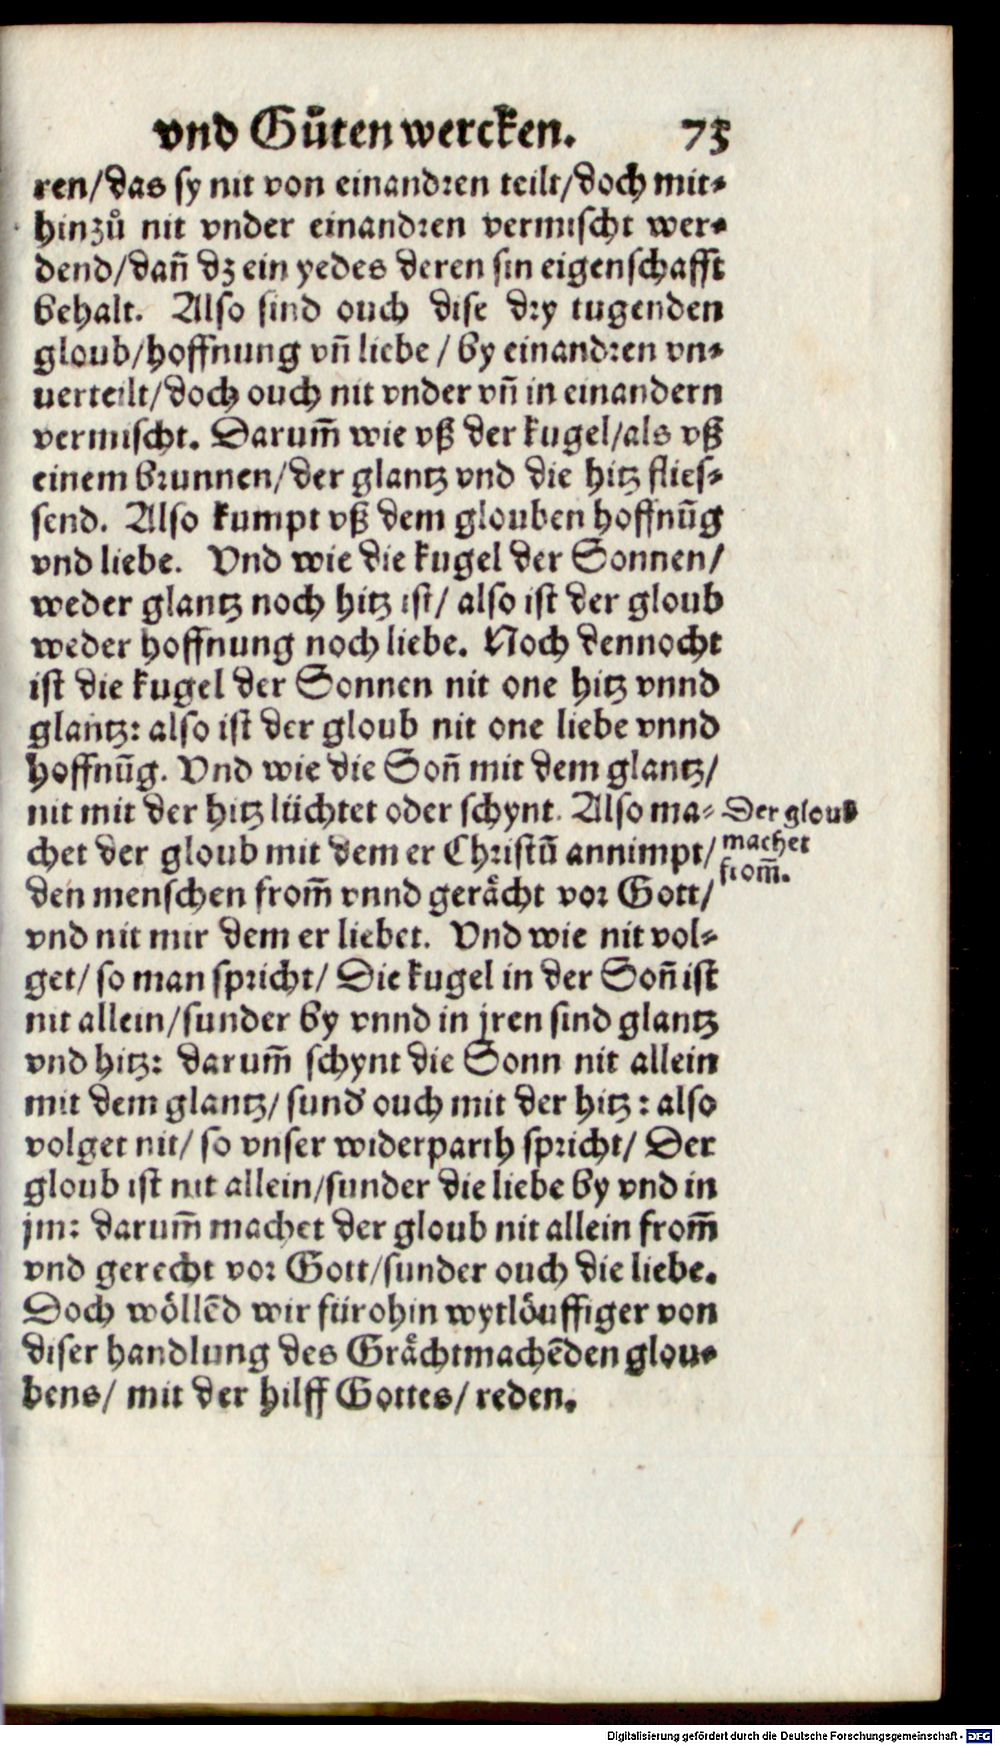 vnd Gůten wercken. 75
ren/das sy nit von einandren teilt/doch mit-
hinzů nit vnder einandren vermischt wer-
dend/dañ dz ein yedes deren sin eigenschafft
behalt. Also sind ouch dise dry tugenden
gloub/hoffnung vñ liebe / by einandren vn-
uerteilt/doch ouch nit vnder vñ in einandern
vermischt. Darum̃ wie vß der kugel/als vß
einem brunnen/der glantz vnd die hitz flies-
send. Also kumpt vß dem glouben hoffnũg
vnd liebe. Vnd wie die kugel der Sonnen/
weder glantz noch hitz ist/ also ist der gloub
weder hoffnung noch liebe. Noch dennocht
ist die kugel der Sonnen nit one hitz vnnd
glantz: also ist der gloub nit one liebe vnnd
hoffnũg. Vnd wie die Soñ mit dem glantz/
nit mit der hitz lüchtet oder schynt. Also ma-
chet der gloub mit dem er Christũ annimpt/
den menschen from̃ vnnd gerächt vor Gott/
vnd nit mir dem er liebet. Vnd wie nit vol-
get/ so man spricht/ Die kugel in der Soñ ist
nit allein/sunder by vnnd in jren sind glantz
vnd hitz: darum̃ schynt die Sonn nit allein
mit dem glantz/ sund' ouch mit der hitz: also
volget nit/ so vnser widerparth spricht/ Der
gloub ist nit allein/sunder die liebe by vnd in
jm: darum̃ machet der gloub nit allein from̃
vnd gerecht vor Gott/sunder ouch die liebe.
Doch wöllẽd wir fürohin wytlöuffiger von
diser handlung des Grächtmachẽden glou-
bens/ mit der hilff Gottes/ reden.
Der gloub
machet
from̃.
Digitalisierung gefördert durch die Deutsche Forschungsgemeinschaft - DFG